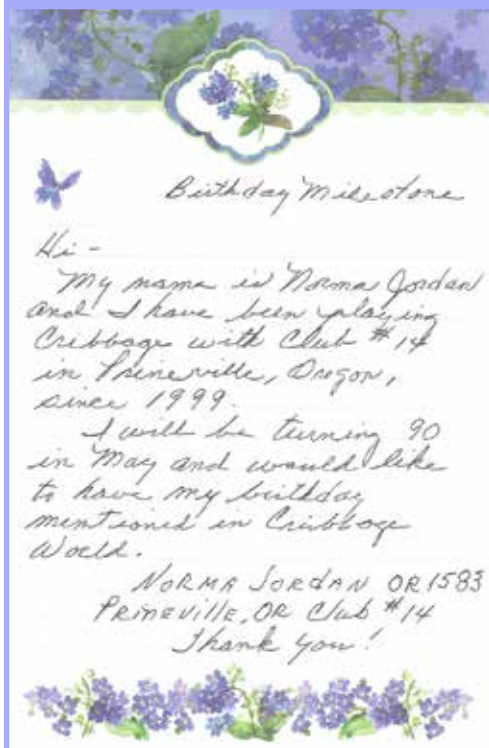 Birthday Milestone
Hi -
My name is Norma Jordan
and I have been playing
Cribbage with Club #14
in Prineville, Oregon,
since 1999.
I will be turning 90
in May and would like
to have my birthday
mentioned in Cribbage
World.
NORMA JORDAN OR1583
PRINEVILLE, OR Club #14
Thank you!